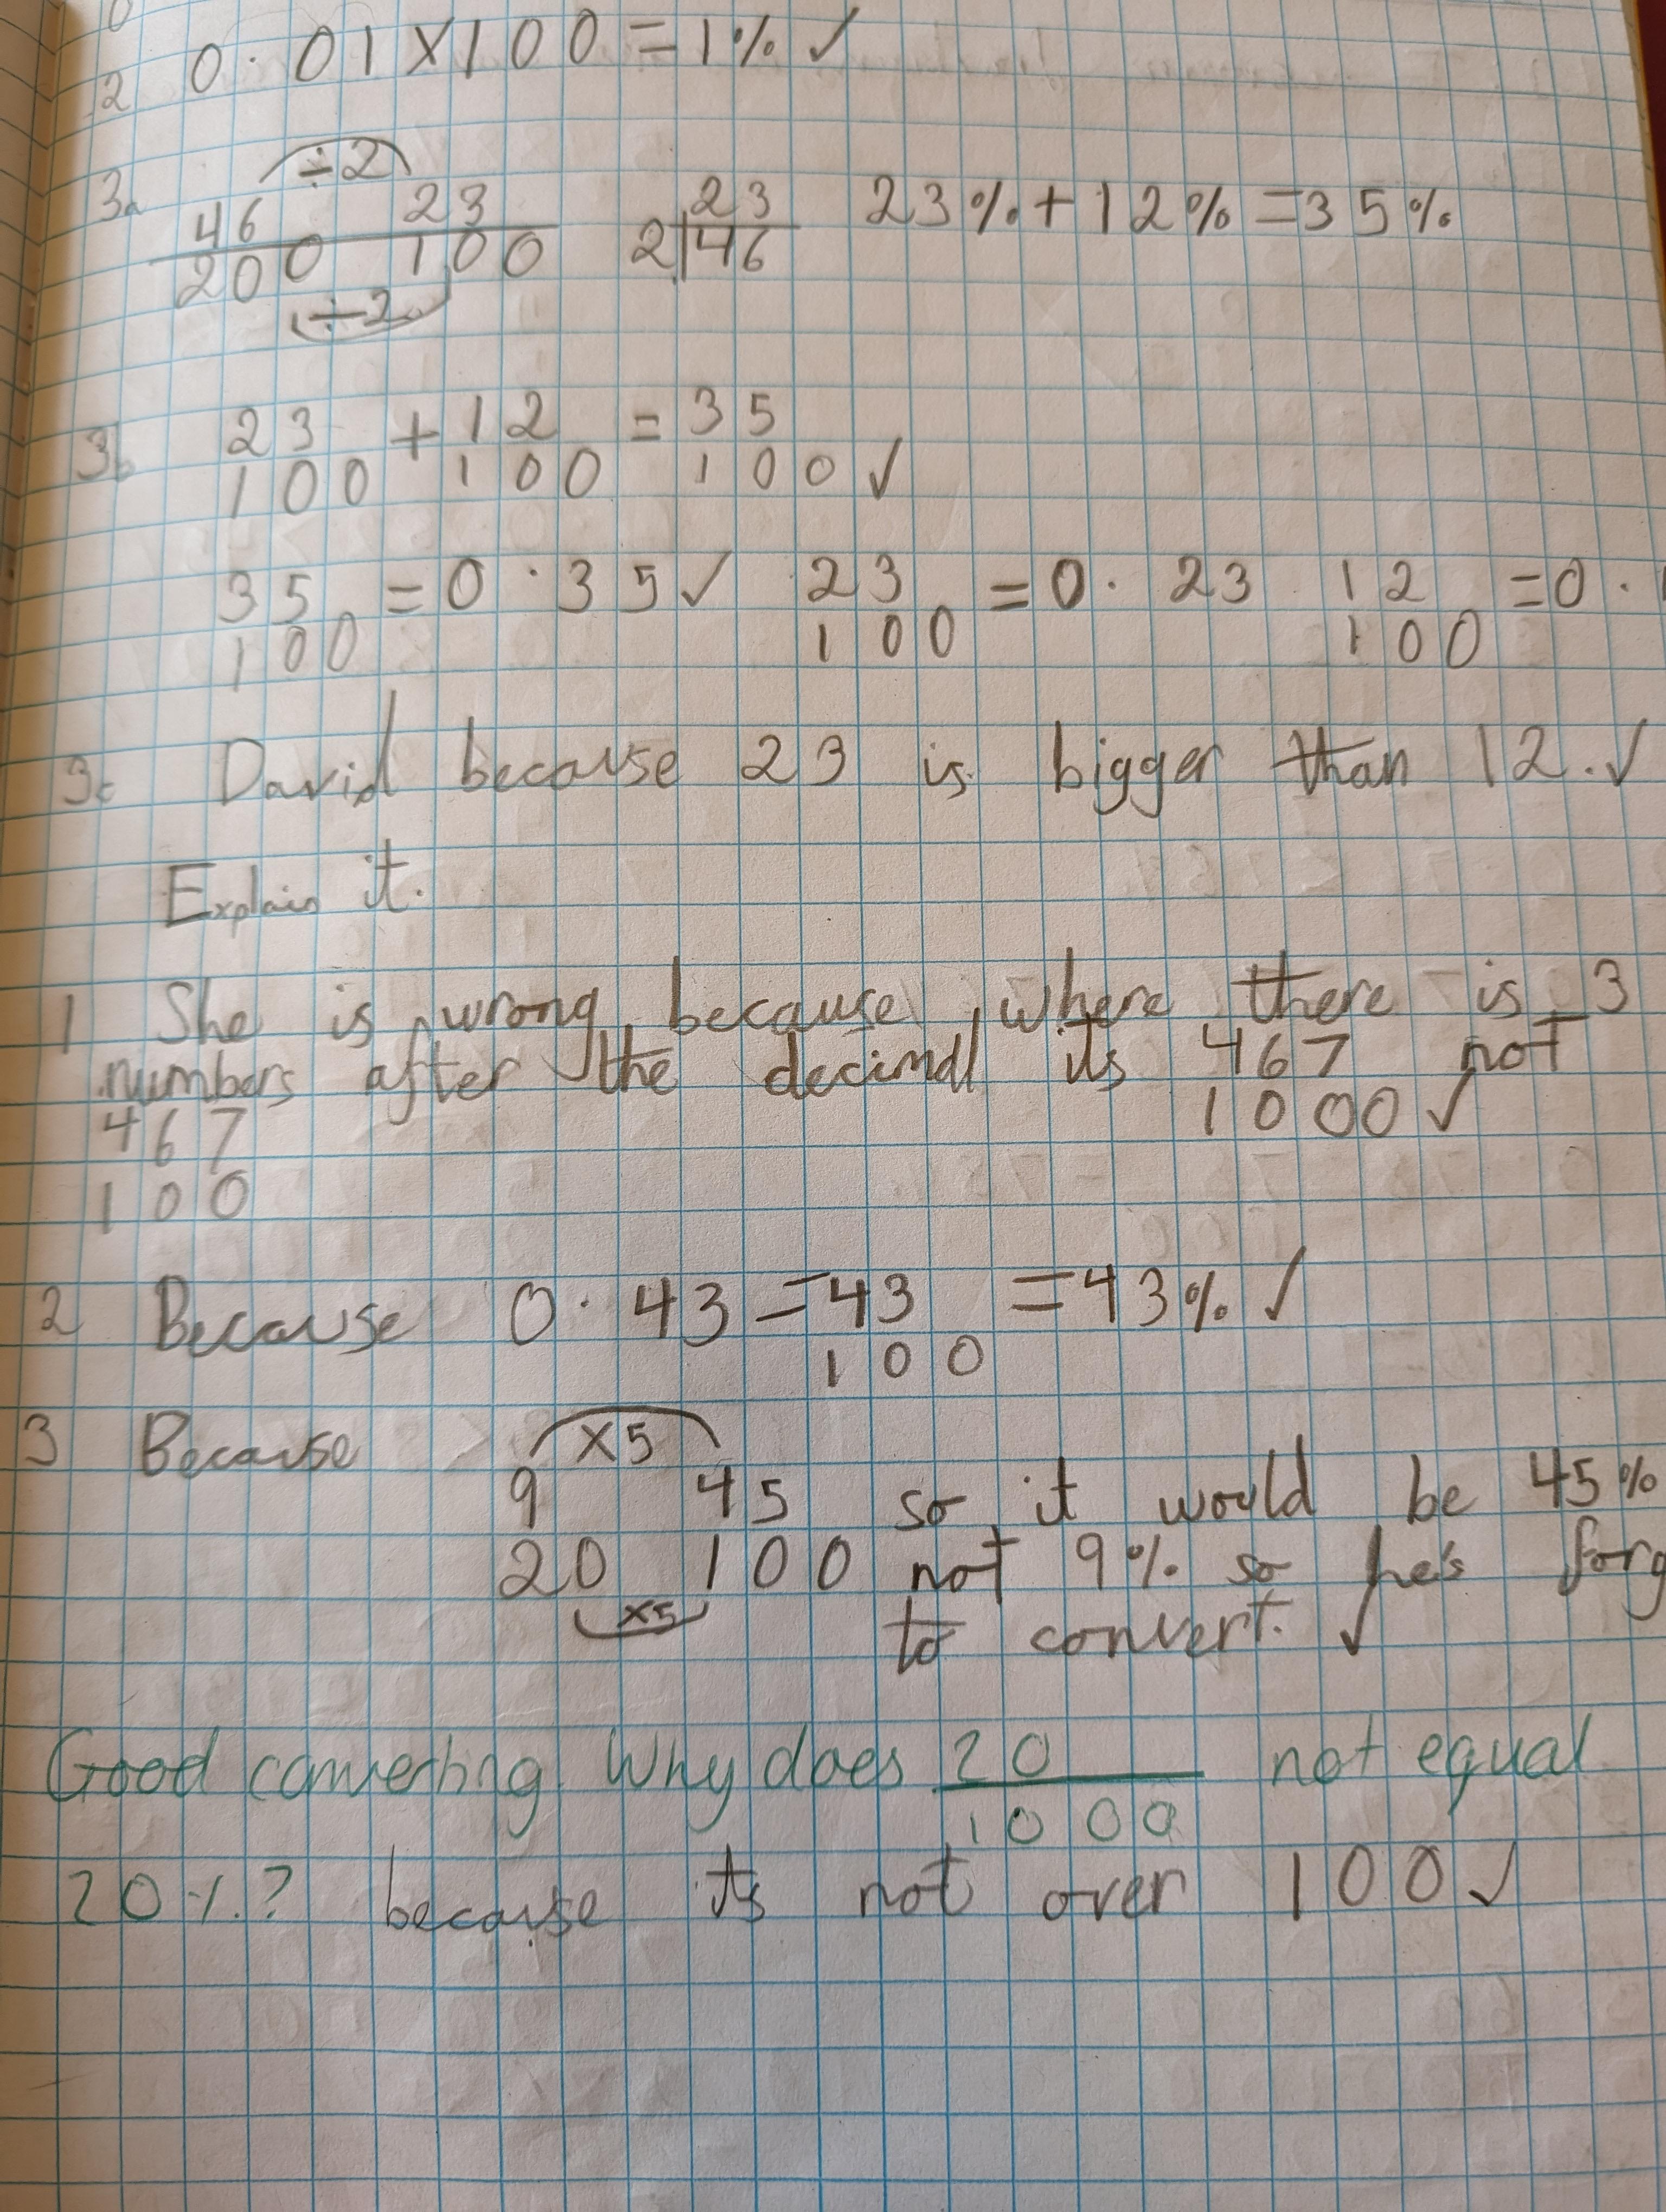 2 0.01 × 100 = 1% ✓
÷2
3a 46/200 23/100 2|46 23 23% + 12% = 35%
÷2
3b 23/100 + 12/100 = 35/100 ✓
35/100 = 0.35 ✓ 23/100 = 0.23 12/100 = 0.
3c David because 23 is bigger than 12. ✓
Explain it.
1 She is wrong because where there is 3
numbers after the decimal its 467/1000 not ✓
467/100
2 Because 0.43 = 43/100 = 43% ✓
3 Because ×5
9/20 45/100 so it would be 45%
not 9% so he's forg
×5
to convert. ✓
Good converting. Why does 20/1000 not equal
20%? because its not over 100 ✓